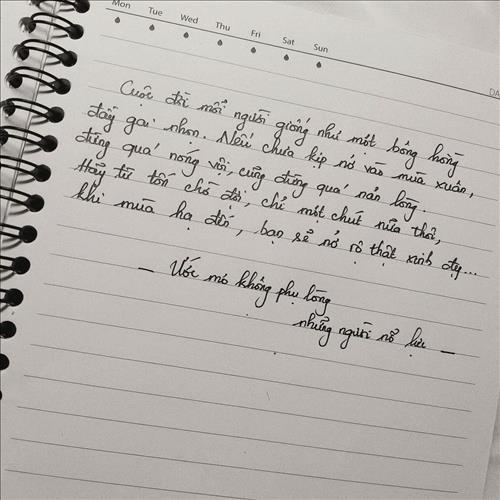 Mon Tue Wed Thu Fri Sat Sun
DA
Cuộc đời mỗi người giống như một bông hồng
đầy gai nhọn. Nếu chưa kịp nở vào mùa xuân,
đừng quá nóng vội, cũng đừng quá nản lòng.
Hãy từ tốn chờ đợi, chỉ một chút nữa thôi,
khi mùa hạ đến, bạn sẽ nở rộ thật xinh đẹp...
— Ước mơ không phụ lòng
những người nỗ lực —